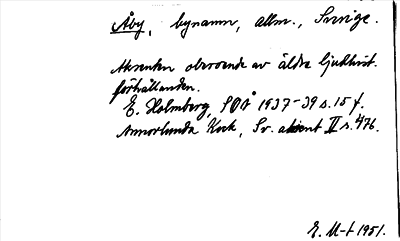 Åby, bynamn, allm., Sverige.
Aksenten oberoende av äldre ljudhist.
förhållanden.
E. Holmberg, SOÅ 1937-39 s. 15 f.
Annorlunda Kock, Sv. akcent II s. 476.
E. U-t 1951.